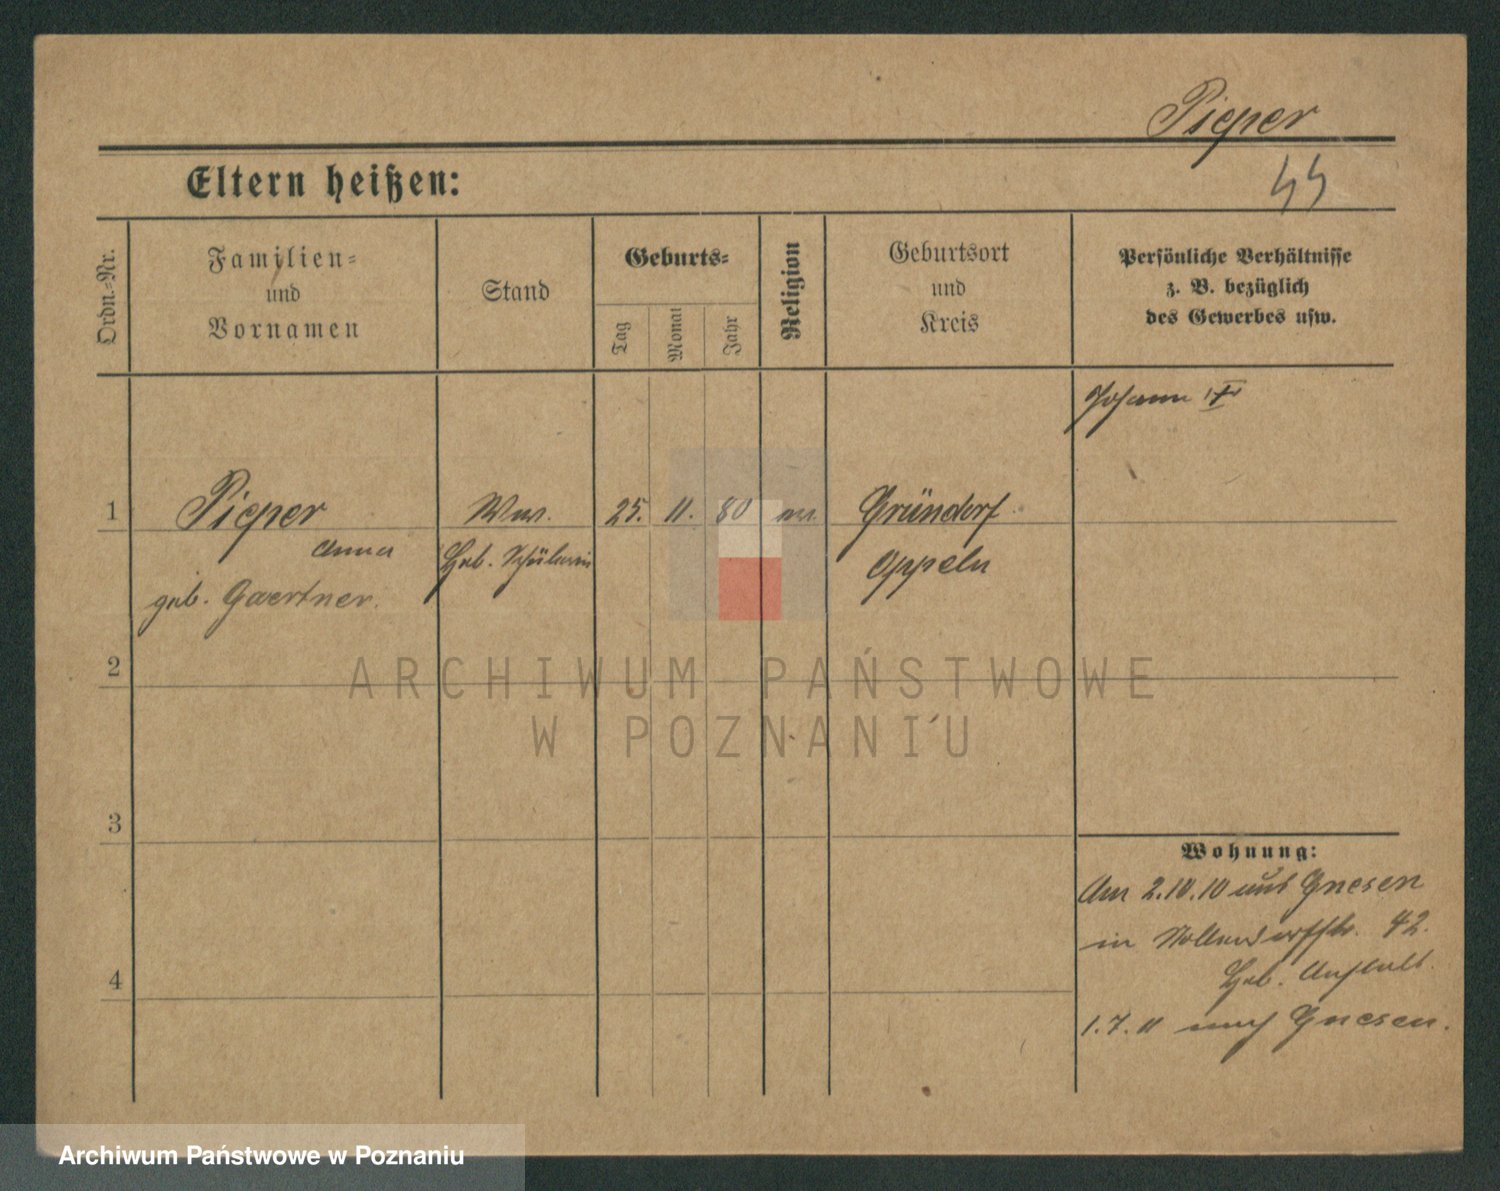 Pieper
44
Eltern heißen:
Ordn.-Nr.
Familien-
und
Vornamen
Stand
Geburts-
Tag
Monat
Jahr
Religion
Geburtsort
und
Kreis
Persönliche Verhältnisse
z. B. bezüglich
des Gewerbes usw.
Johann
1
Pieper
Ww.
25.
11.
80
Gründorf
Anna
Heb. Schülerin
Oppeln
geb. Gaertner.
2
ARCHIWUM PAŃSTWOWE
W POZNANIU
3
4
Wohnung:
Am 2.10.10 aus Gnesen
in Nollendorfstr. 42.
Heb. Anstalt.
1.7.11 nach Gnesen.
Archiwum Państwowe w Poznaniu